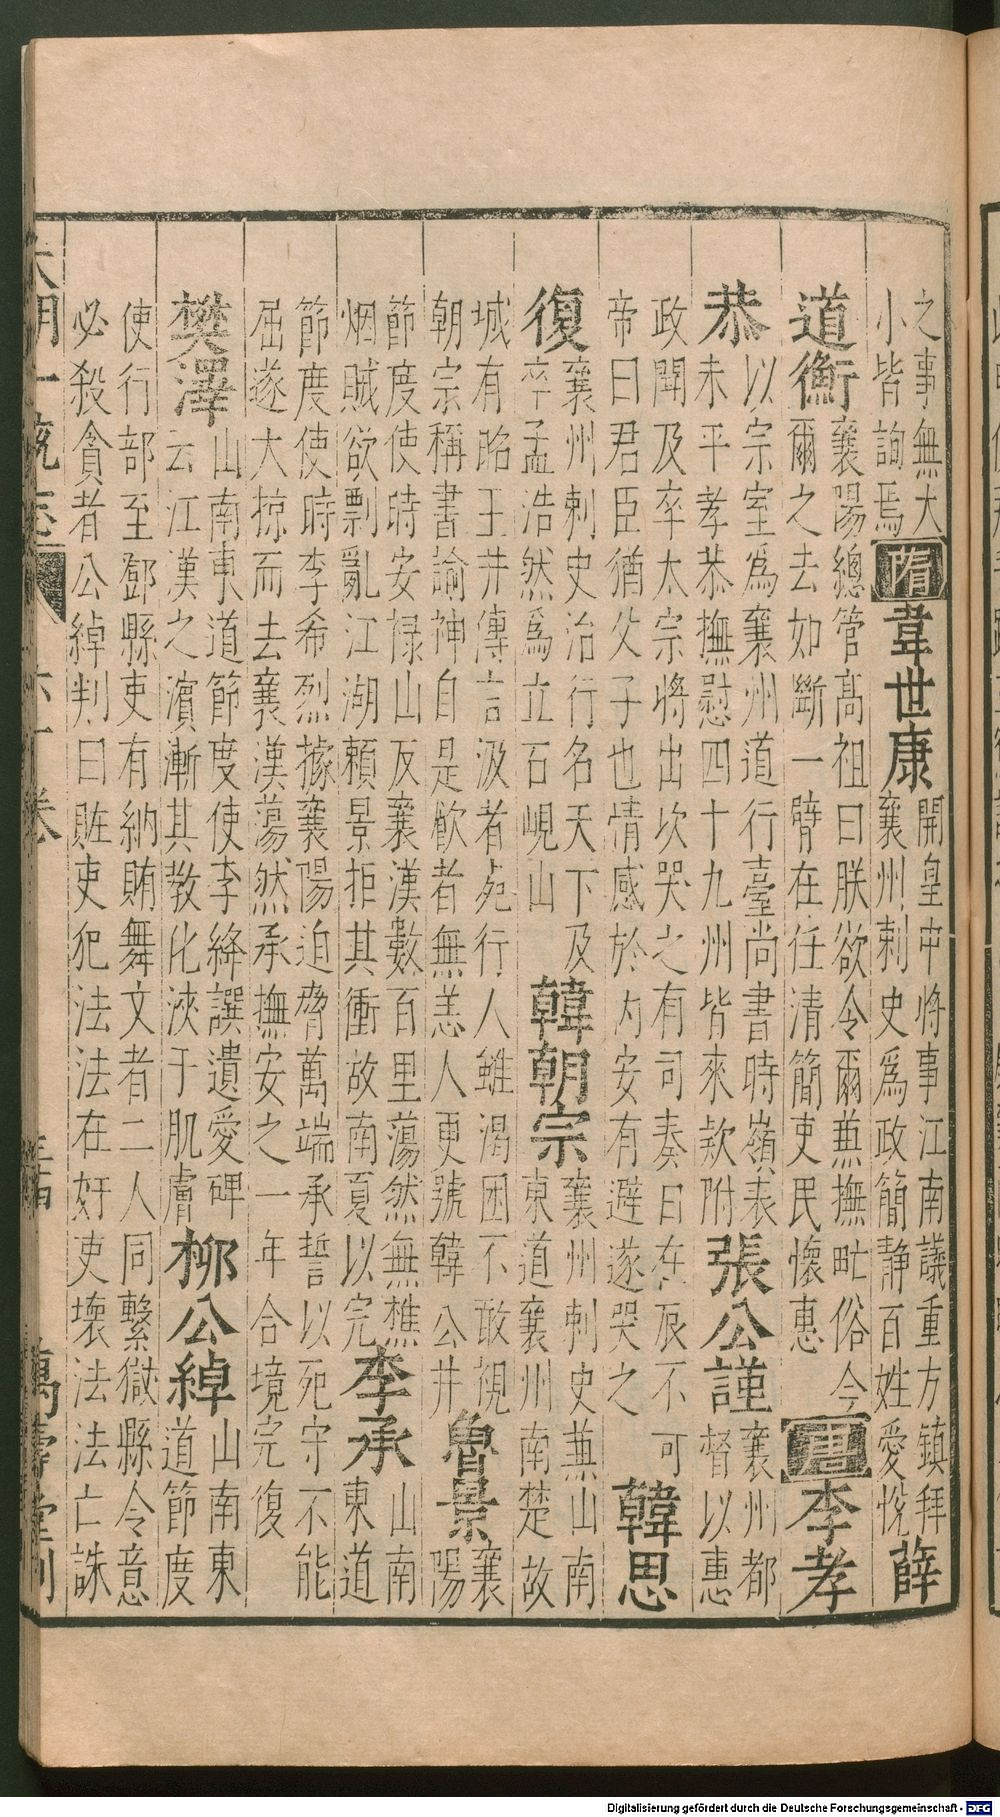 之事無大
小皆詢焉
隋韋世康
開皇中將事江南議重方鎮拜
襄州刺史爲政簡靜百姓愛悅
薛道衡
襄陽總管高祖曰朕欲令爾兼撫甿俗今
爾之去如斷一臂在任清簡吏民懷惠
唐李孝恭
以宗室爲襄州道行臺尚書時嶺表
未平孝恭撫慰四十九州皆來欵附
張公謹
襄州都
督以惠
政聞及卒太宗將出次哭之有司奏曰在辰不可
帝曰君臣猶父子也情感於内安有避遂哭之
韓思復
襄州刺史治行名天下及
卒孟浩然爲立石峴山
韓朝宗
襄州刺史兼山南
東道襄州南楚故
城有昭王井傳言汲者死行人雖渴困不敢視
朝宗稱書諭神自是飲者無恙人更號韓公井
魯景
襄
陽
節度使時安祿山反襄漢數百里蕩然無樵
烟賊欲剽亂江湖頼景拒其衝故南夏以完
李承
山南
東道
節度使時李希烈據襄陽迫脅萬端承誓以死守不能
屈遂大掠而去襄漢蕩然承撫安之一年合境完復
樊澤
山南東道節度使李絳譔遺愛碑
云江漢之濱漸其教化浹于肌膚
柳公綽
山南東
道節度
使行部至鄧縣吏有納賄舞文者二人同繫獄縣令意
必殺貪者公綽判曰賍吏犯法法在奸吏壞法法亡誅
大明一統志 六十卷 萬壽堂刊
Digitalisierung gefördert durch die Deutsche Forschungsgemeinschaft - DFG